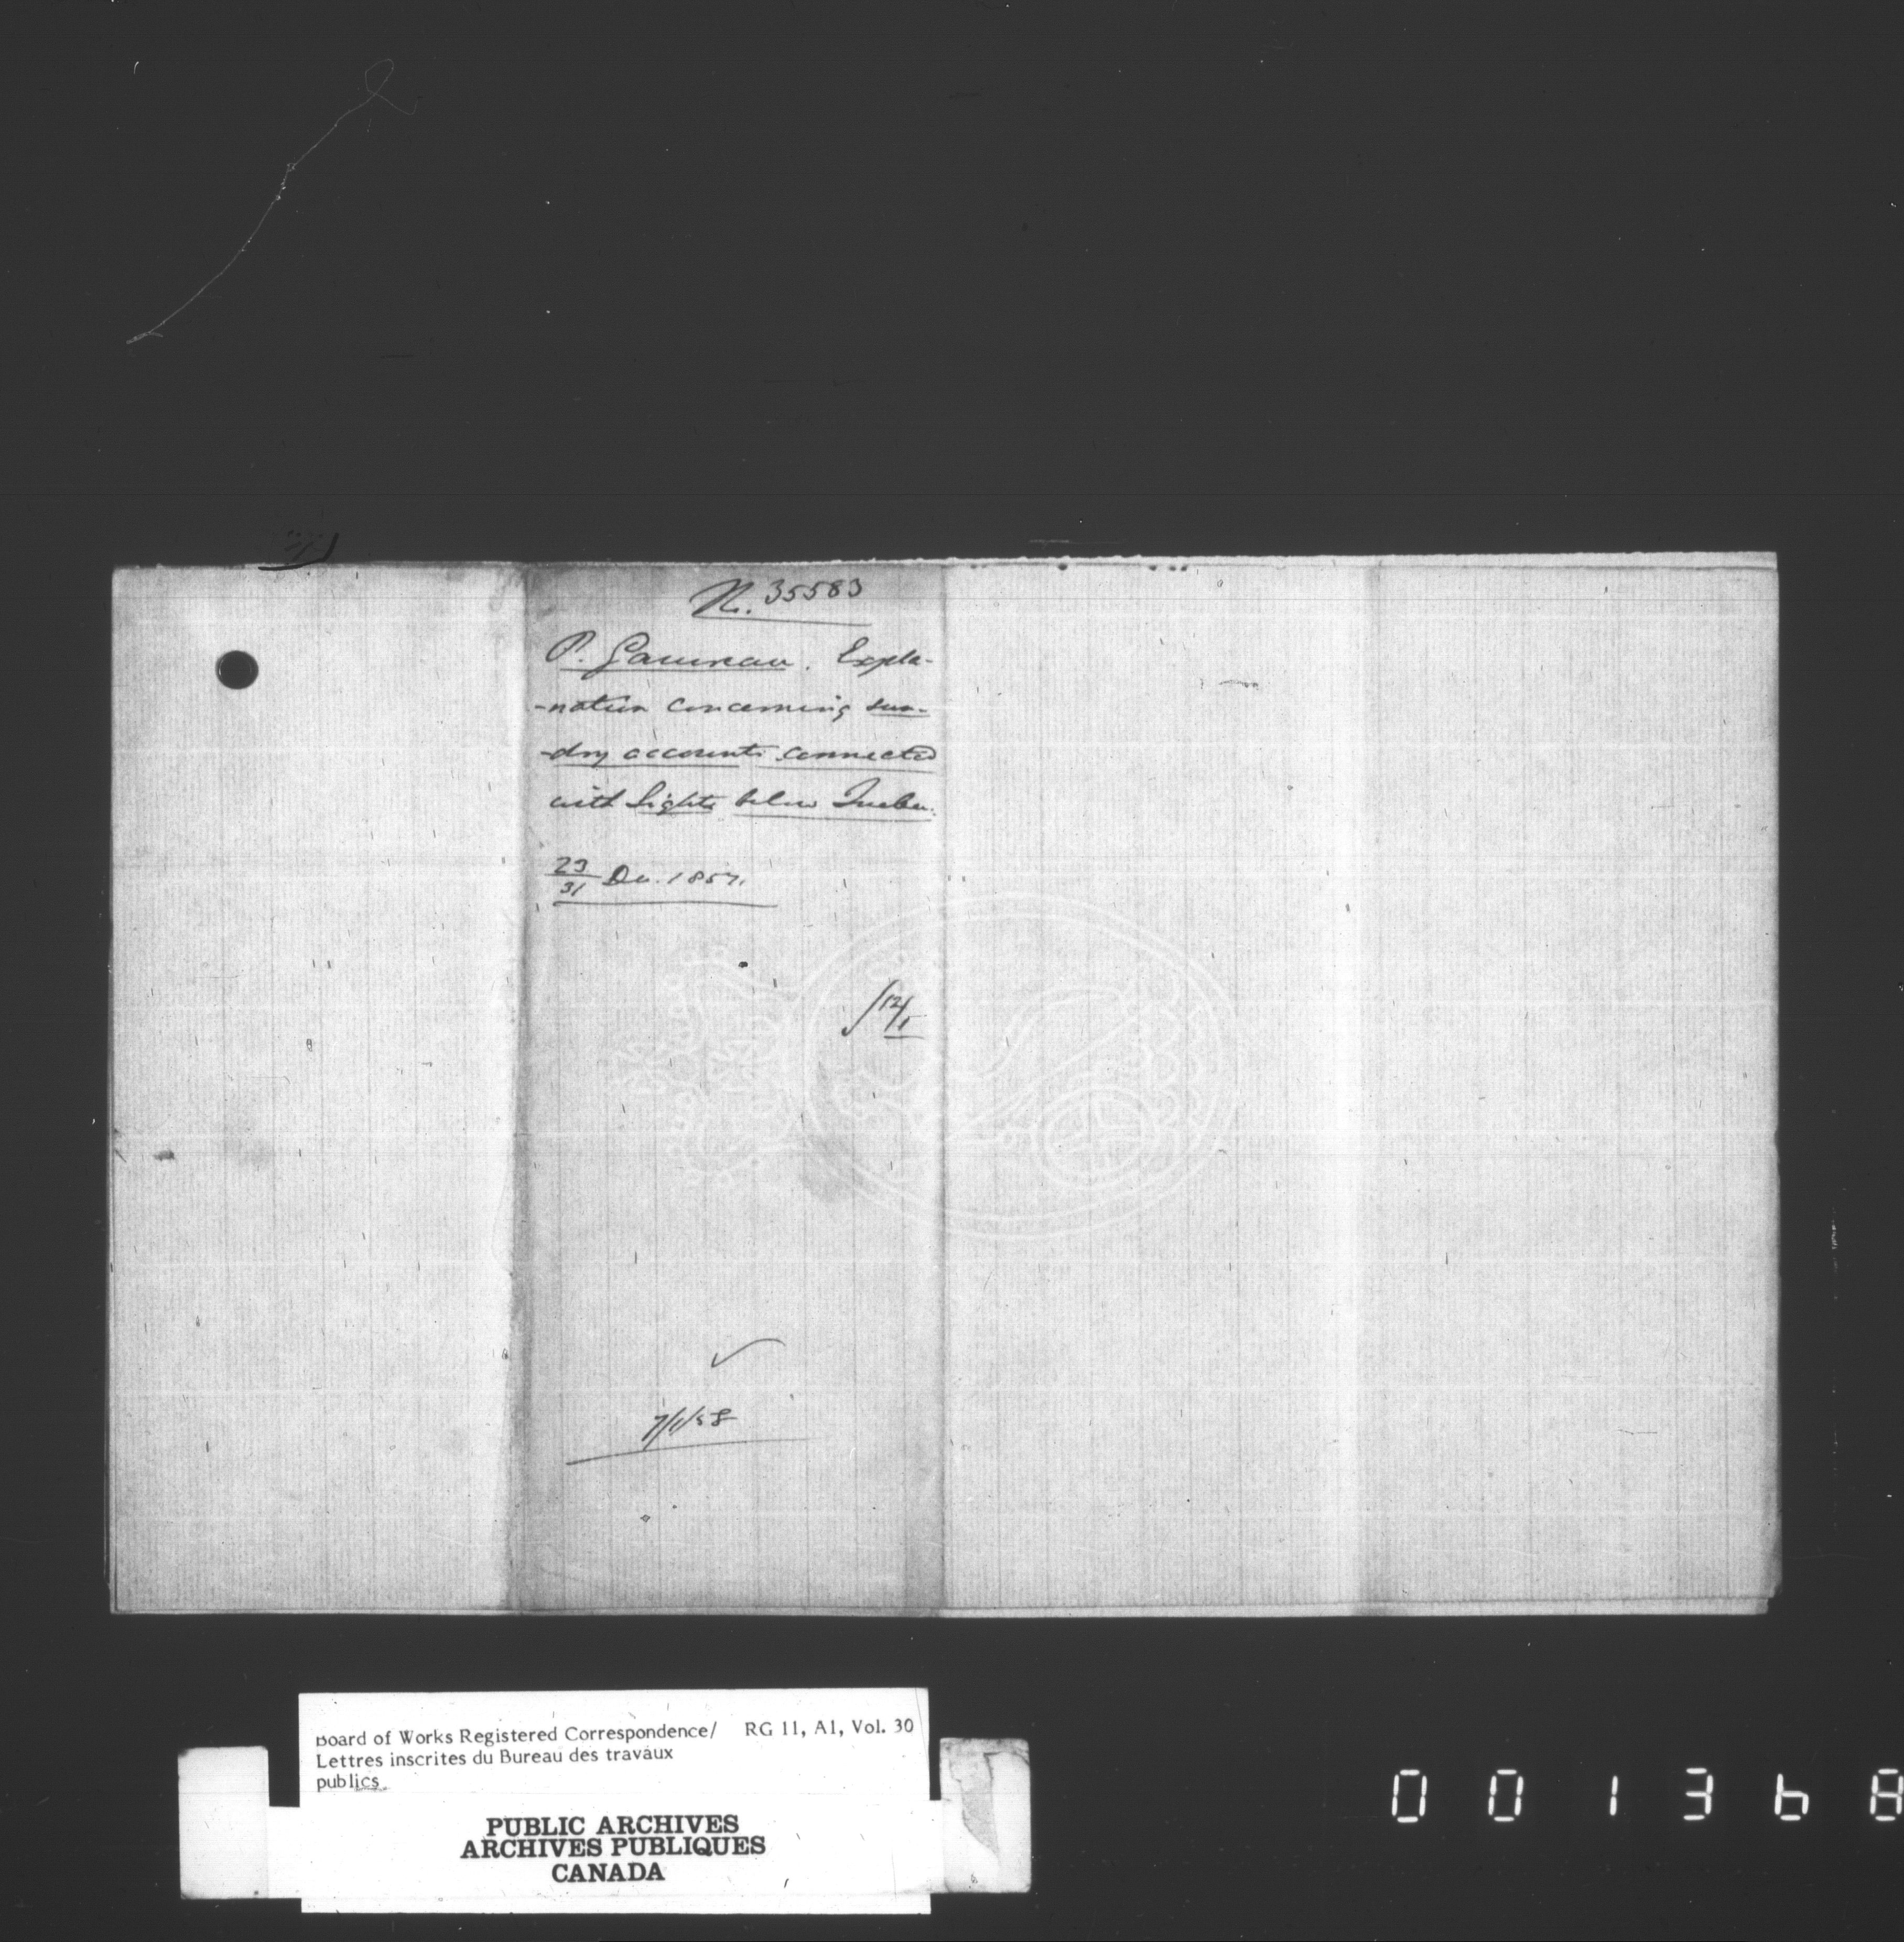 N. 35583
P. Gauvreau. Expla-
-nation concerning sun-
-dry accounts connected
with Lights below Quebec.
23/31 Dec. 1857.
12/1
7/1/58
Board of Works Registered Correspondence/ RG 11, A1, Vol. 30
Lettres inscrites du Bureau des travaux
publics
PUBLIC ARCHIVES
ARCHIVES PUBLIQUES
CANADA
001368